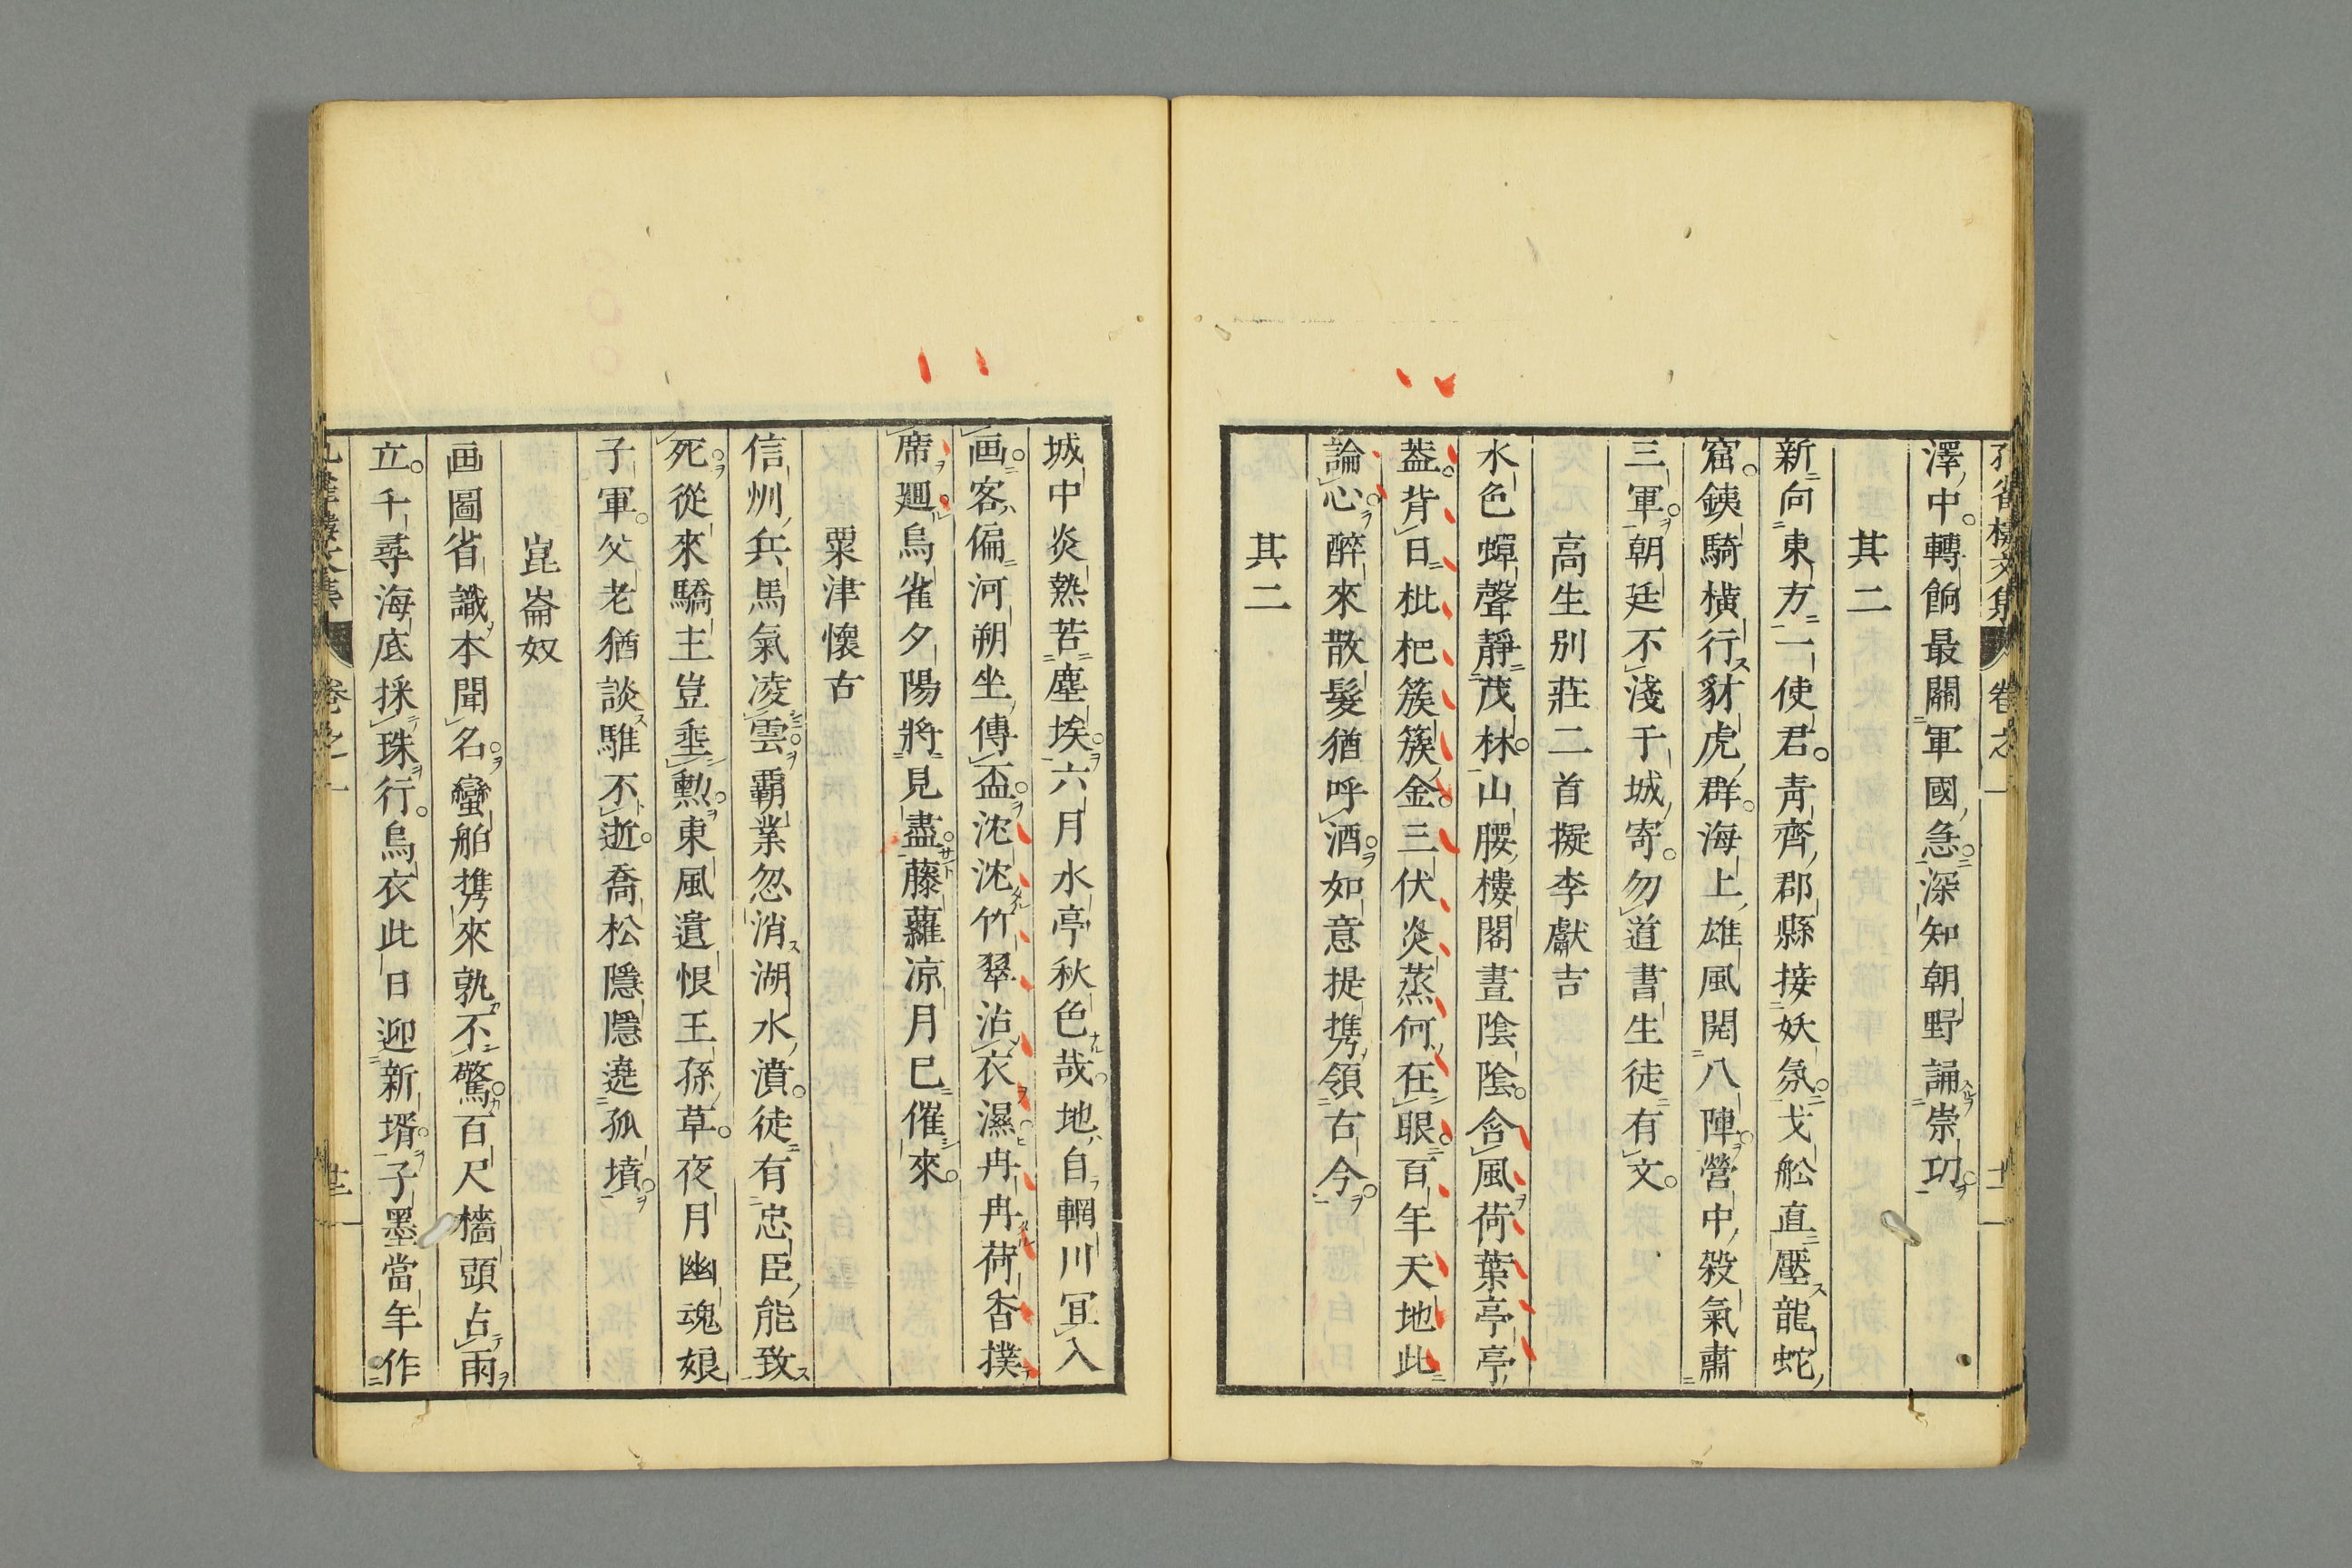 孔雀樓文集 卷之一 十二
澤中轉餉最關軍國急深知朝野誦崇功
其二
新向東方一使君青齊郡縣接妖氛戈舩直壓龍蛇
窟鐵騎橫行豺虎群海上雄風開八陣營中殺氣肅
三軍朝廷不淺干城寄勿道書生徒有文
高生別莊二首擬李獻吉
水色蟬聲靜茂林山腰樓閣晝陰陰含風荷葉亭亭
蓋背日枇杷簇簇金三伏炎蒸何在眼百年天地此
論心醉來散髮猶呼酒如意提携領古今
其二
城中炎熱苦塵埃六月水亭秋色哉地自輞川冝入
画客偏河朔坐傳盃沈沈竹翠沾衣濕冉冉荷香撲
席廻烏雀夕陽將見盡藤蘿凉月已催來
粟津懷古
信州兵馬氣凌雲覇業忽消湖水濆徒有忠臣能致
死從來驕主豈垂勲東風遺恨王孫草夜月幽魂娘
子軍父老猶談騅不逝喬松隱隱遶孤墳
崑崙奴
画圖省識本聞名蠻舶携來孰不驚百尺檣頭占雨
立千尋海底採珠行烏衣此日迎新壻子墨當年作
孔雀樓文集 卷之一 十三